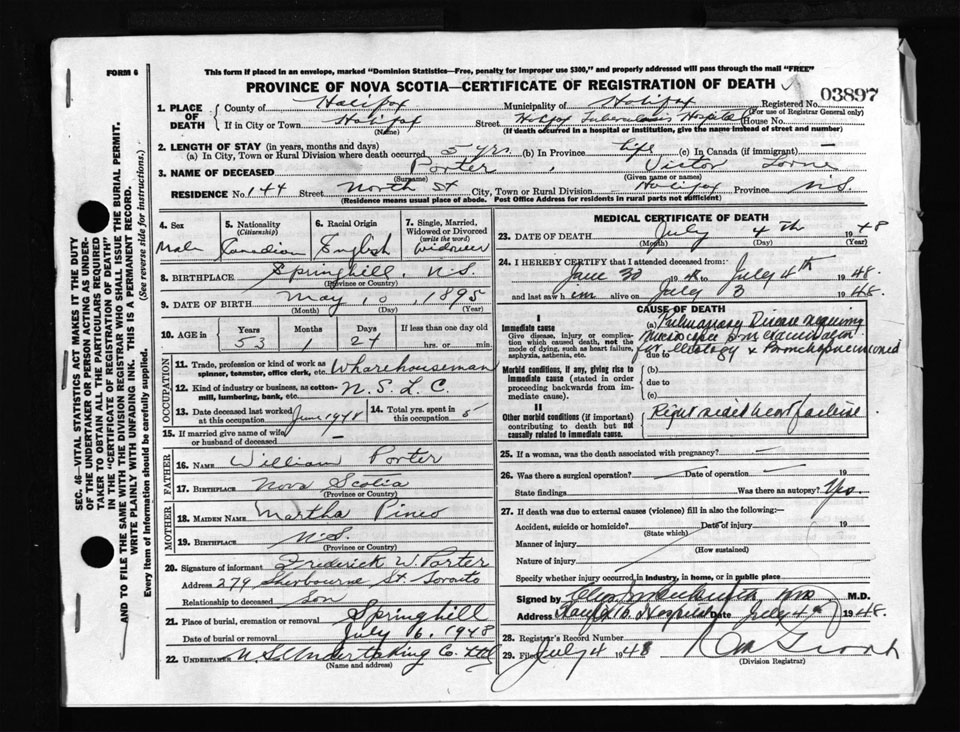 FORM 6
This form if placed in an envelope, marked "Dominion Statistics—Free, penalty for improper use $300," and properly addressed will pass through the mail "FREE"
PROVINCE OF NOVA SCOTIA—CERTIFICATE OF REGISTRATION OF DEATH
03897
1. PLACE OF DEATH County of Halifax Municipality of Halifax Registered No.
(For use of Registrar General only)
If in City or Town Halifax Street Halifax Tuberculosis Hospital House No.
(Name) (If death occurred in a hospital or institution, give the name instead of street and number)
2. LENGTH OF STAY (in years, months and days)
(a) In City, Town or Rural Division where death occurred 5 yrs. (b) In Province Life (c) In Canada (if immigrant) —
3. NAME OF DECEASED Porter, Victor Lorne
(Surname) (Given name or names)
RESIDENCE No. 144 Street North St City, Town or Rural Division Halifax Province N.S.
(Residence means usual place of abode. Post Office Address for residents in rural parts not sufficient)
4. Sex Male
5. Nationality (Citizenship) Canadian
6. Racial Origin English
7. Single, Married, Widowed or Divorced (write the word) Widower
8. BIRTHPLACE Springhill, N.S.
(Province or Country)
9. DATE OF BIRTH May 10, 1895
(Month) (Day) (Year)
10. AGE in Years 53 Months 1 Days 24 If less than one day old hrs. or min.
OCCUPATION
11. Trade, profession or kind of work as spinner, teamster, office clerk, etc. Wharehouseman
12. Kind of industry or business, as cotton-mill, lumbering, bank, etc. N.S.L.C.
13. Date deceased last worked at this occupation June 1948
14. Total yrs. spent in this occupation 5
15. If married give name of wife or husband of deceased —
FATHER
16. NAME William Porter
17. BIRTHPLACE Nova Scotia
(Province or Country)
MOTHER
18. MAIDEN NAME Martha Pineo
19. BIRTHPLACE N.S.
(Province or Country)
20. Signature of informant Frederick W. Porter
Address 279 Sherbourne St. Toronto
Relationship to deceased Son
21. Place of burial, cremation or removal Springhill
Date of burial or removal July 6, 1948
22. UNDERTAKER N.S. Undertaking Co. Ltd
(Name and address)
MEDICAL CERTIFICATE OF DEATH
23. DATE OF DEATH July 4th 1948
(Month) (Day) (Year)
24. I HEREBY CERTIFY that I attended deceased from:
June 30 to July 4th 1948.
and last saw him alive on July 3 1948.
CAUSE OF DEATH
I
Immediate cause
Give disease, injury or complication which caused death, not the mode of dying, such as heart failure, asphyxia, asthenia, etc.
(a) Pulmonary Disease requiring
microscopic examination
due to for etiology &
Morbid conditions, if any, giving rise to immediate cause (stated in order proceeding backwards from immediate cause).
(b)
due to
(c)
II
Other morbid conditions (if important) contributing to death but not causally related to immediate cause.
Right sided heart failure
25. If a woman, was the death associated with pregnancy? —
26. Was there a surgical operation? — Date of operation — 19
State findings Was there an autopsy? Yes.
27. If death was due to external causes (violence) fill in also the following:—
Accident, suicide or homicide? Date of injury 19
(State which)
Manner of injury
(How sustained)
Nature of injury
Specify whether injury occurred in industry, in home, or in public place
Signed by M.D.
Address Hospital Date July 4th 1948.
28. Registrar's Record Number
29. Filed July 4 1948
(Division Registrar)
SEC. 46—VITAL STATISTICS ACT MAKES IT THE DUTY
OF THE UNDERTAKER OR PERSON ACTING AS UNDER-
TAKER TO OBTAIN ALL THE PARTICULARS REQUIRED
IN THE "CERTIFICATE OF REGISTRATION OF DEATH"
AND TO FILE THE SAME WITH THE DIVISION REGISTRAR WHO SHALL ISSUE THE BURIAL PERMIT.
WRITE PLAINLY WITH UNFADING INK. THIS IS A PERMANENT RECORD.
Every item of Information should be carefully supplied. (See reverse side for instructions.)